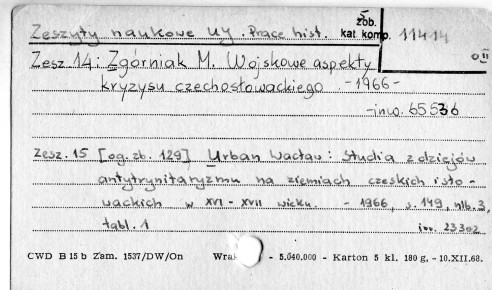 Zeszyty naukowe UJ. Prace hist.
zob. kat. komp. 11414
0.II
Zesz. 14: Zgórniak M. Wojskowe aspekty
kryzysu czechosłowackiego -1966-
-inw. 65536
Zesz. 15 [og. zb. 129] Urban Wacław: Studia z dziejów
antytrynitaryzmu na ziemiach czeskich i sło-
wackich w XVI - XVII wieku. - 1966, s. 149, nlb. 3,
tabl. 1
inv. 23302
CWD B 15 b Zam. 1537/DW/On - 5.040.000 - Karton 5 kl. 180 g. - 10.XII.68.